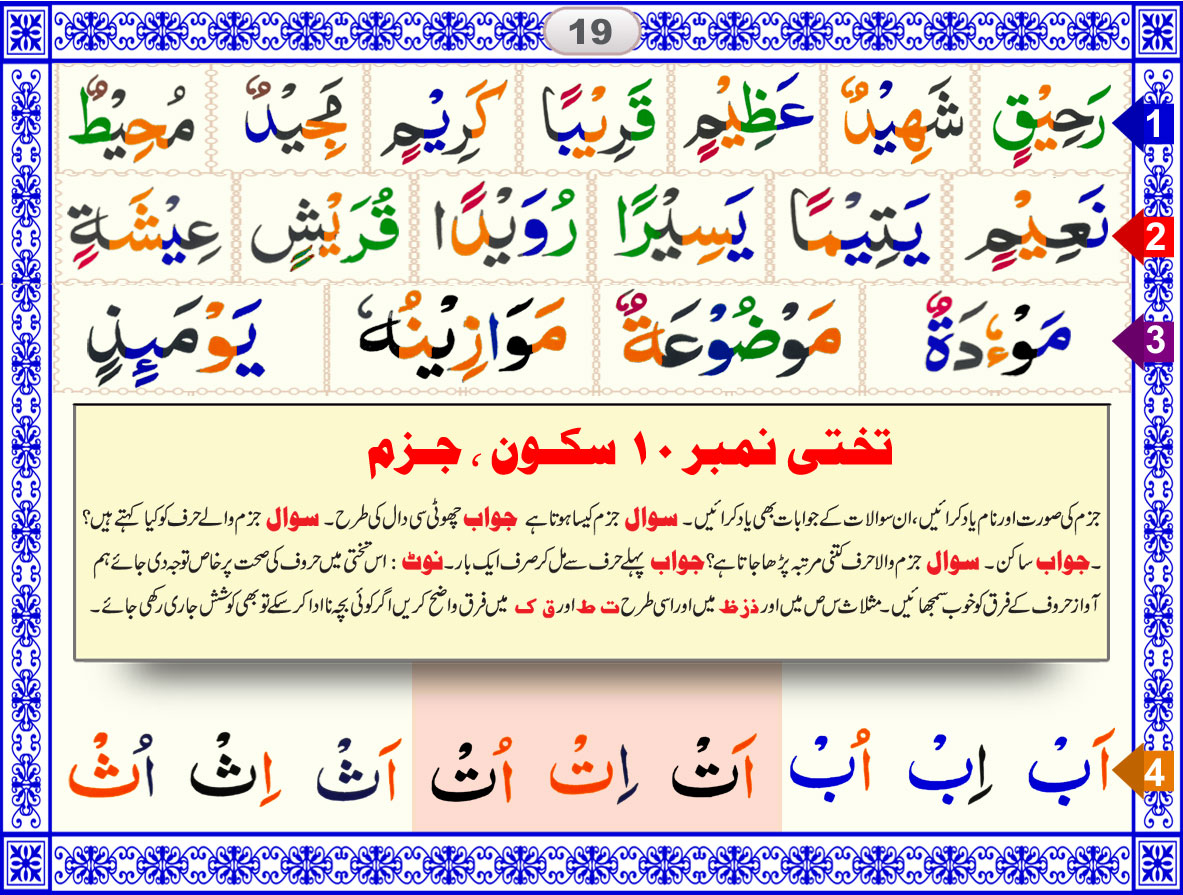 19
1 رَحِيْقٍ شَهِيْدٌ عَظِيْمٍ قَرِيْبًا كَرِيْمٍ مَجِيْدٌ مُحِيْطٌ
2 نَعِيْمٍ يَتِيْمًا يَسِيْرًا رُوَيْدًا قُرَيْشٍ عِيْشَةٍ
3 مَوْءٗدَةٌ مَوْضُوْعَةٌ مَوَازِيْنُهٗ يَوْمَئِذٍ
تختی نمبر ۱۰ سکون ، جزم
جزم کی صورت اور نام یاد کرائیں، ان سوالات کے جوابات بھی یاد کرائیں۔ سوال جزم کیسا ہوتا ہے جواب چھوٹی سی دال کی طرح۔ سوال جزم والے حرف کو کیا کہتے ہیں؟
۔ جواب ساکن۔ سوال جزم والا حرف کتنی مرتبہ پڑھا جاتا ہے؟ جواب پہلے حرف سے مل کر صرف ایک بار۔ نوٹ : اس تختی میں حروف کی صحت پر خاص توجہ دی جائے ہم
آواز حروف کے فرق کو خوب سمجھائیں۔ مثلا ث س ص میں اور ذ ز ظ میں اور اسی طرح ت ط اور ق ک میں فرق واضح کریں اگر کوئی بچہ نا ادا کر سکے تو بھی کوشش جاری رکھی جائے۔
4 اَبْ اِبْ اُبْ اَتْ اِتْ اُتْ اَثْ اِثْ اُثْ